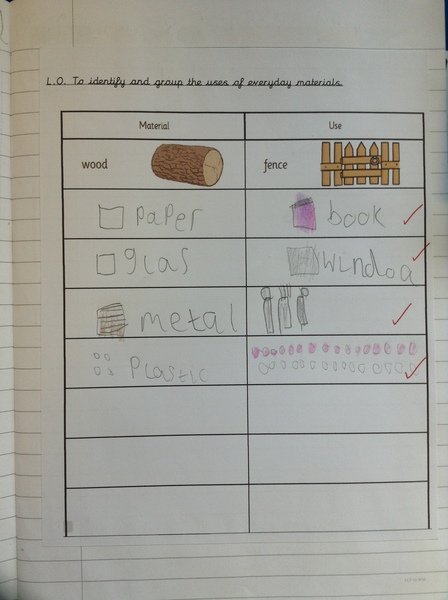 L.O. To identify and group the uses of everyday materials.
Material Use
wood fence
paper book
glas windoa
metal
Plastic